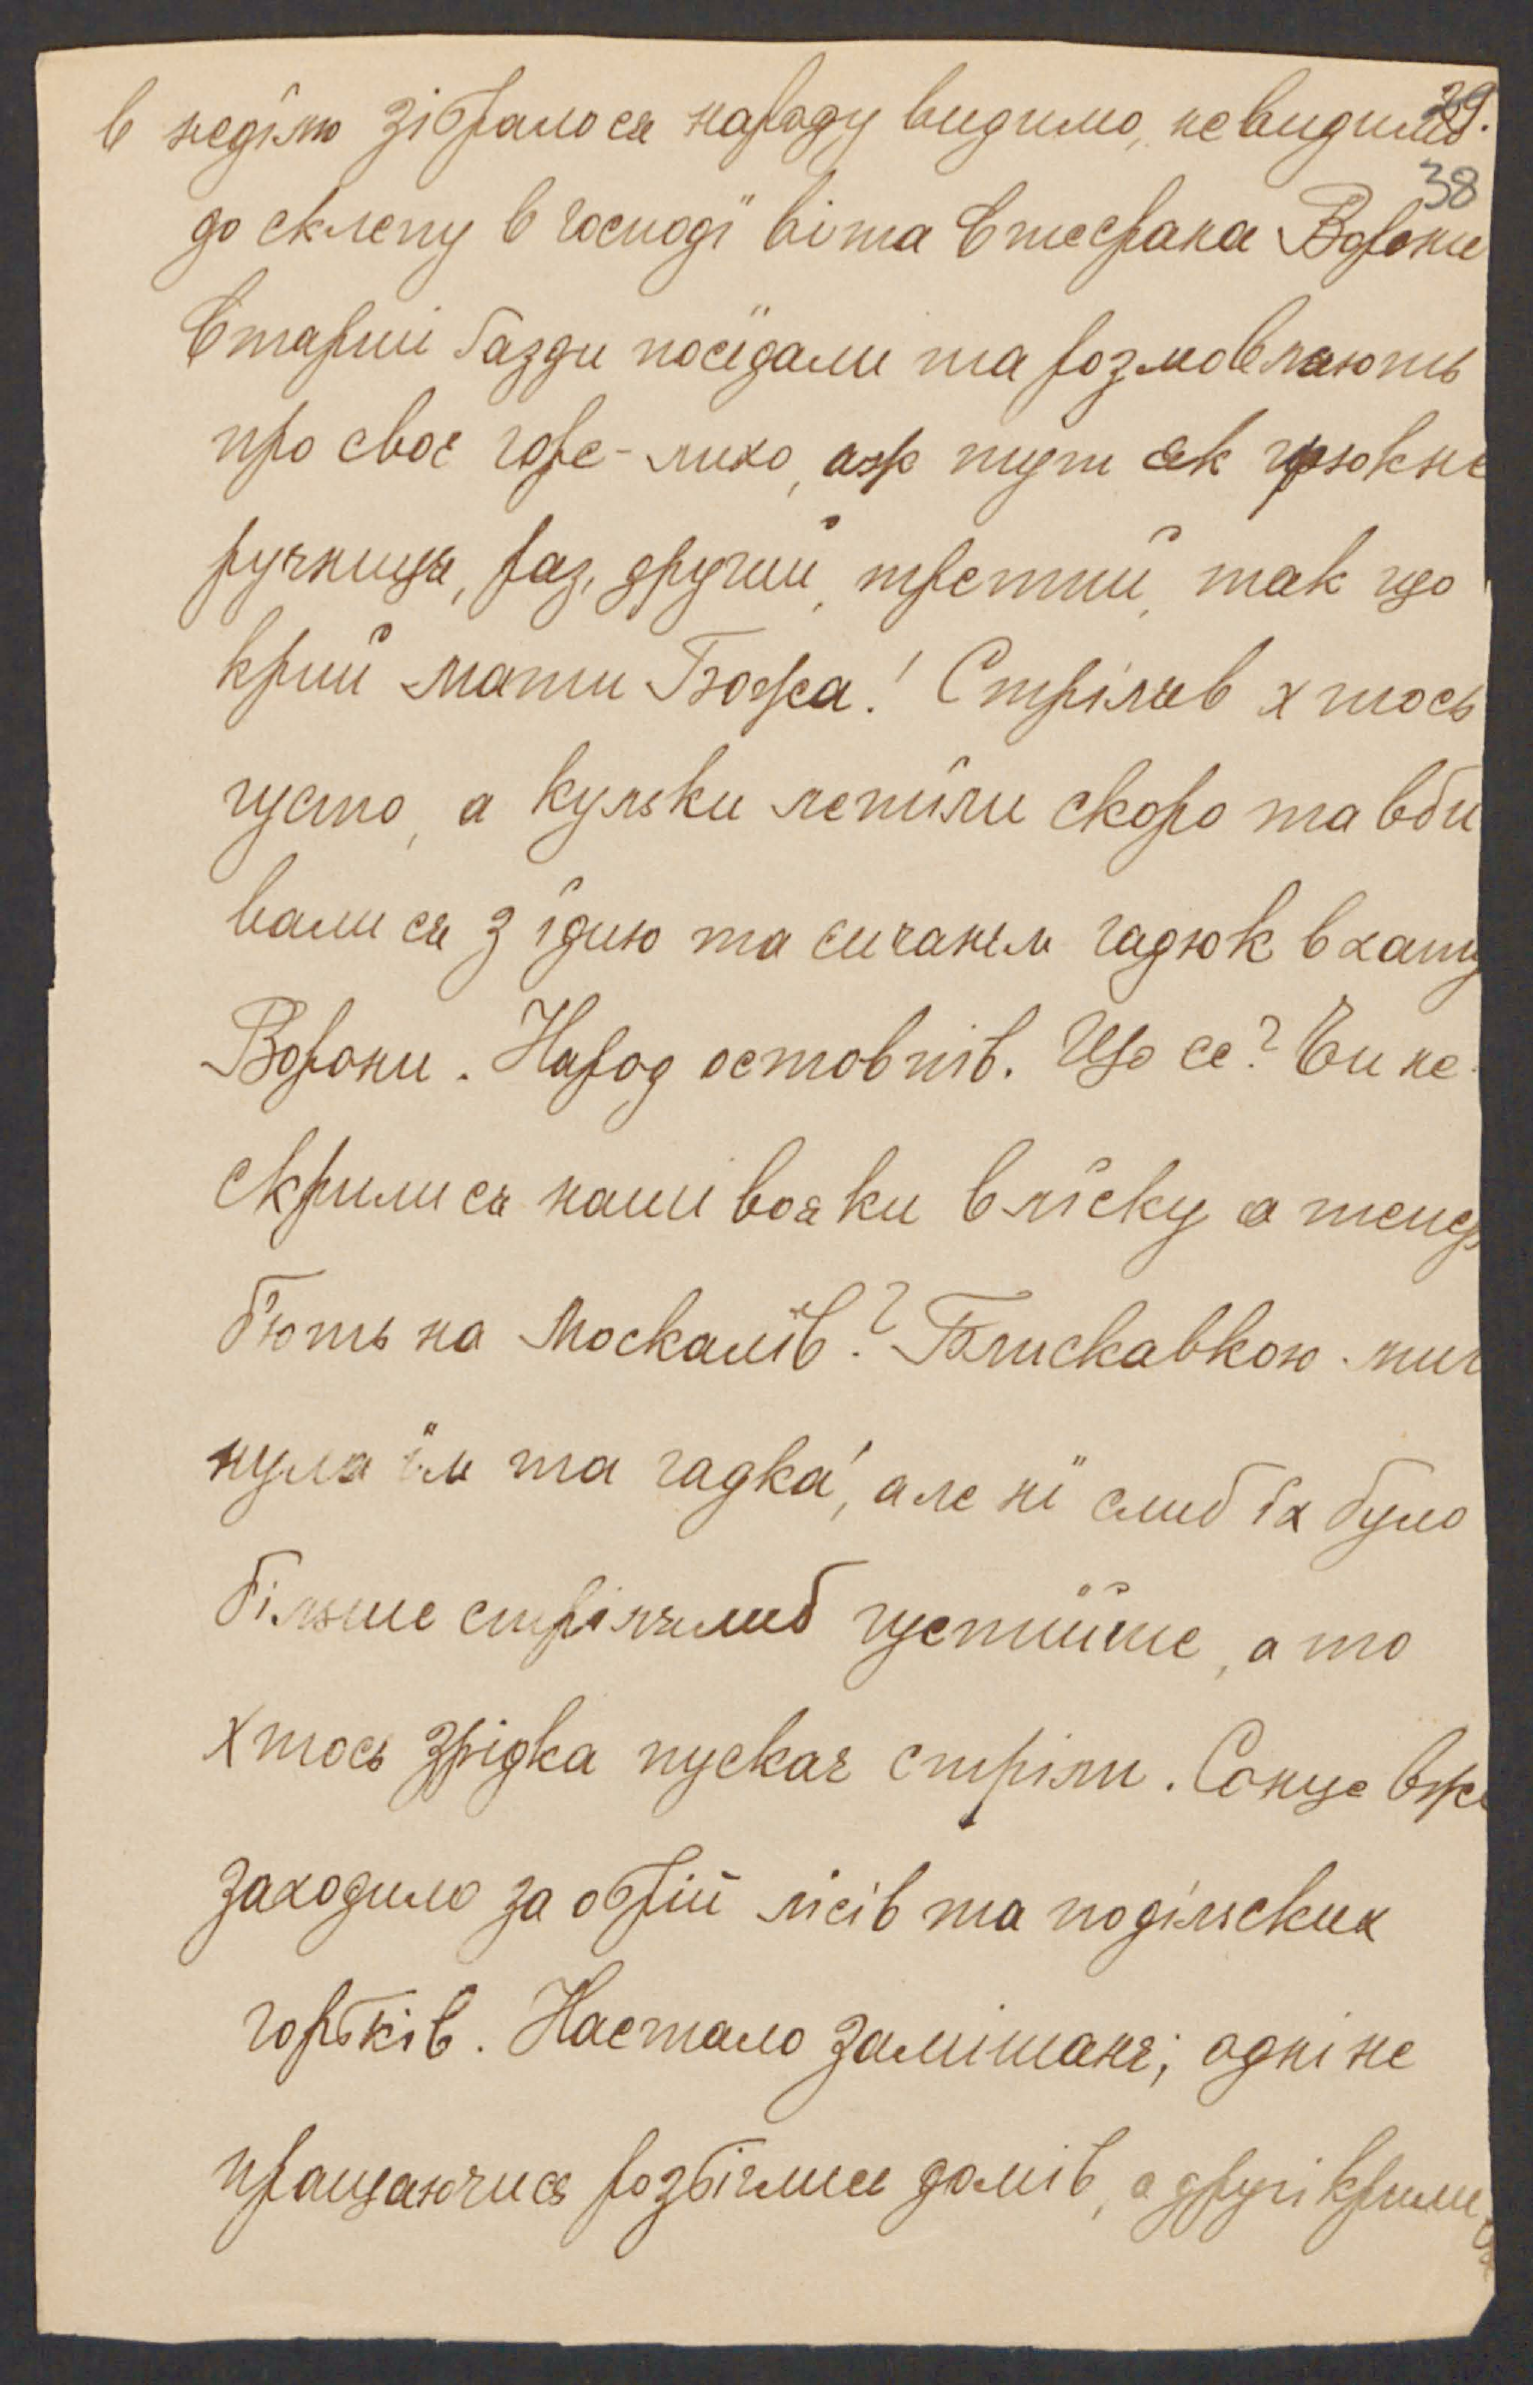 39.
38
в недїлю зібралося народу видимо, невидимо
до склепу в господї війта Стефана Ворони
Старші ґазди посїдали та розмовляють
про своє горе-лихо, аж тут як грюкне
рушниця, раз, другий, третий, так що
крий Мати Божа! Стріляв хтось
густо, а кульки летїли скоро та вби
валися з їдию та сичанєм гадюк в хату
Ворони. Народ остовпів. Що се? Чи не
скрилися наші вояки в лїску а тепер
бють на Москалїв? Блискавкою миг
нула їм та гадка, але нї слиб їх було
більше стрілялиб густїйше, а то
хтось зрідка пускає стріли. Сонце вже
заходило за обрій лїсів та подільских
горбків. Настало замішанє; одні не
пращаючися розбіглися домів, а другі крили
ся